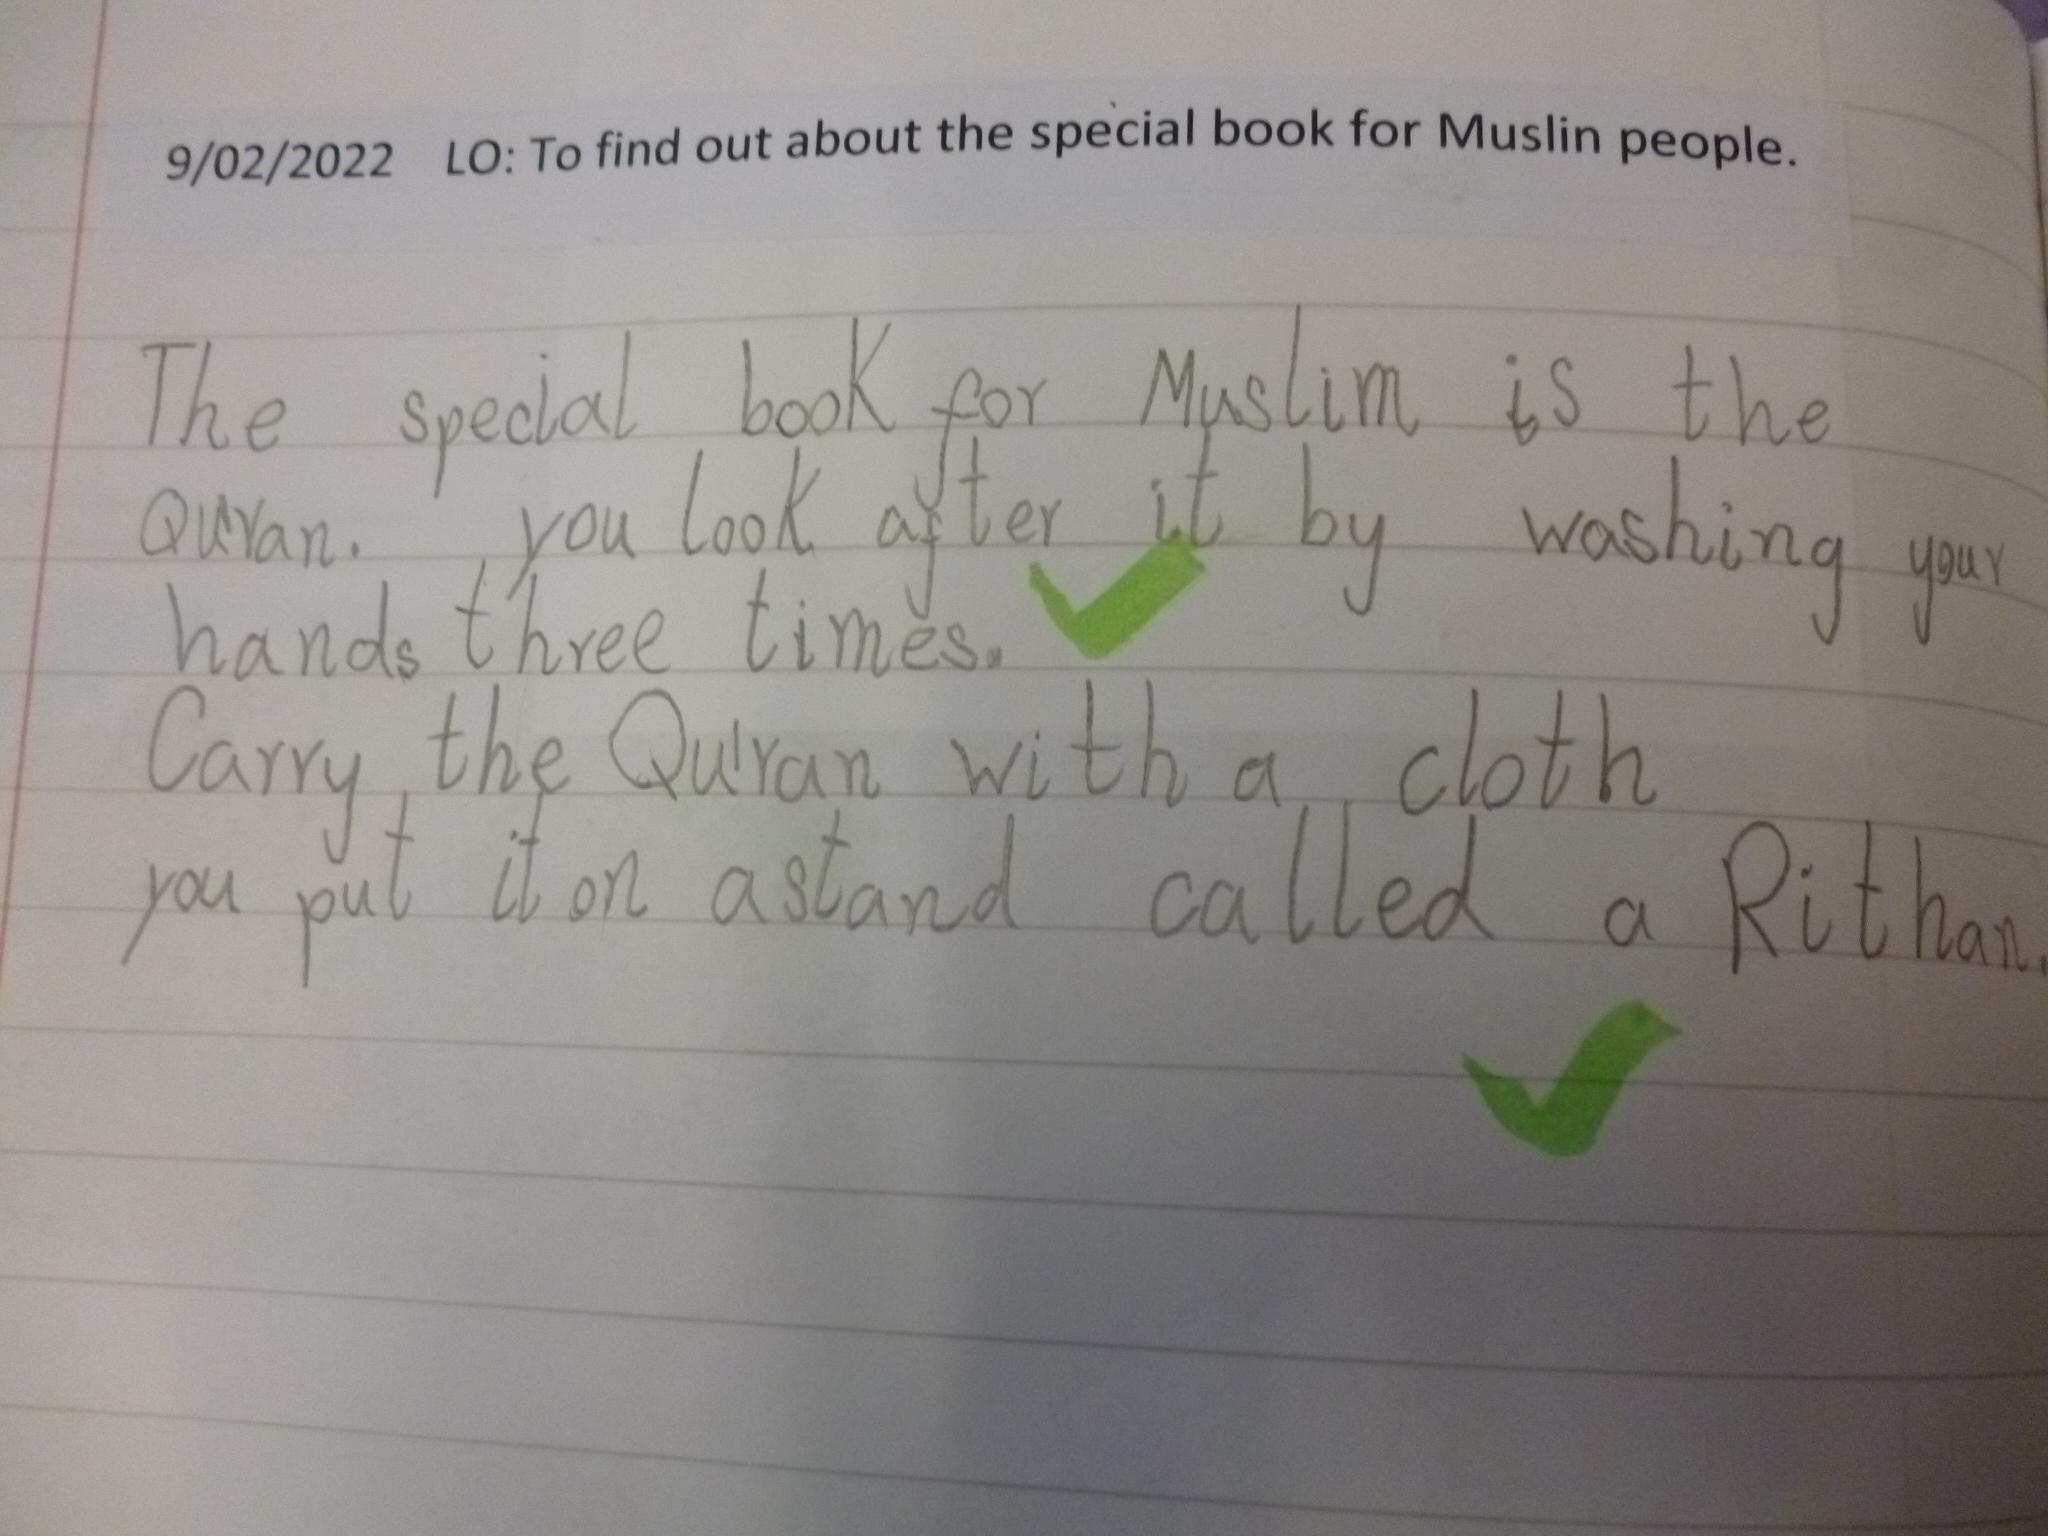 9/02/2022 LO: To find out about the special book for Muslin people.
The special book for Muslim is the
Qu'ran. you look after it by washing your
hands three times.
Carry the Qu'ran with a cloth
you put it on a stand called a Rithan.